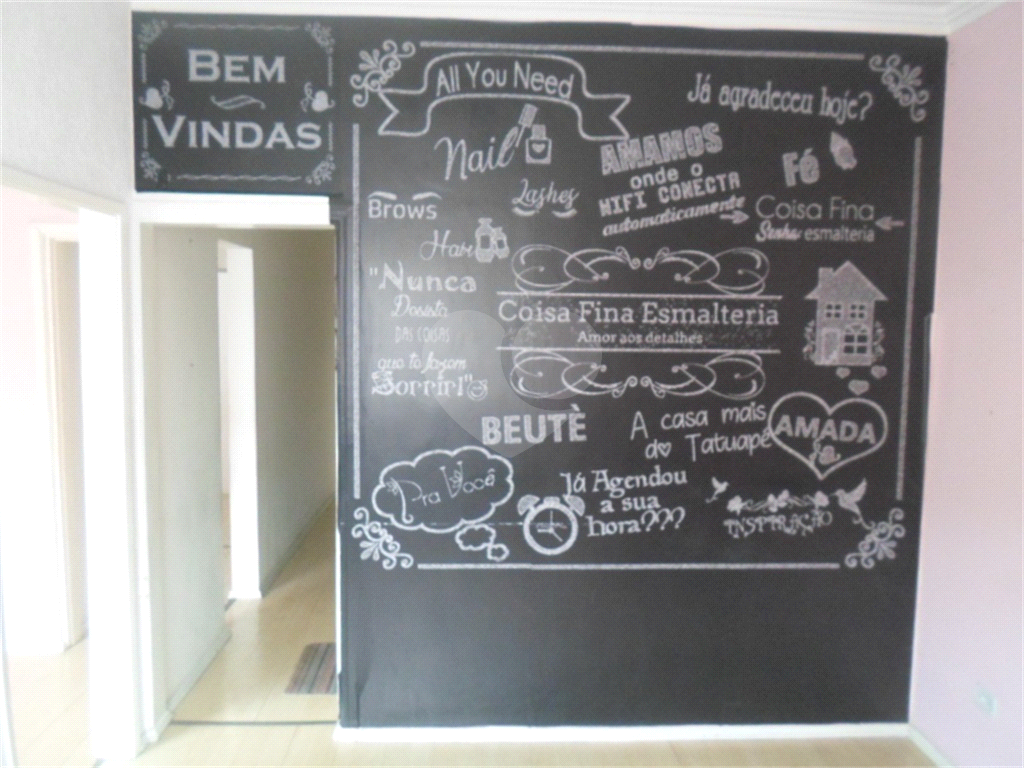 BEM
VINDAS
All You Need
Já agradeceu hoje?
Nail
AMAMOS
onde o
WIFI CONECTA
automaticamente
Fé
Lashes
Brows
Coisa Fina
Sinha esmalteria
Hair
"Nunca
Desista
DAS COISAS
que te fazem
Sorrir!"
Coisa Fina Esmalteria
Amor aos detalhes
BEUTÈ
A casa mais
do Tatuapé
AMADA
Pra Você
Já Agendou
a sua
hora???
INSPIRAÇÃO